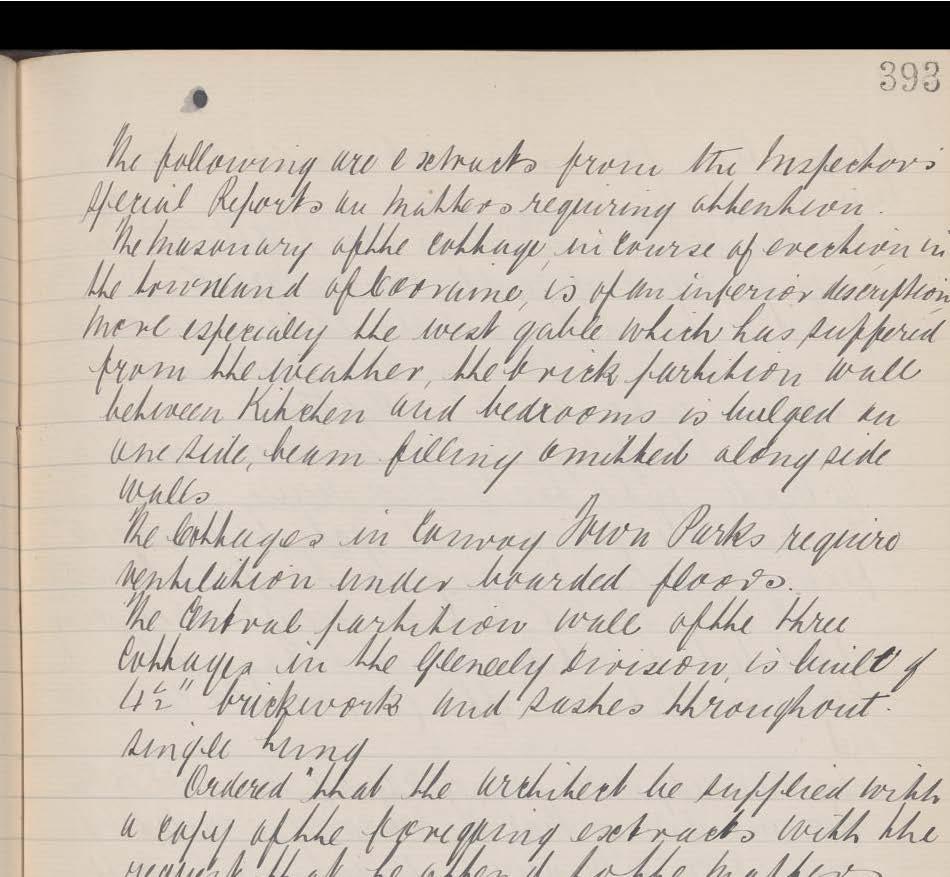 393
The following are extracts from the Inspectors
special Reports on matters requiring attention.
The masonary of the cottage, in course of erection in
the townland of, is of an inferior description,
more especially the west gable which has suffered
from the weather, the brick partition wall
between Kitchen and bedrooms is bulged on
one side, beam filling omitted along side
walls
The Cottages in Convoy Town Parks require
ventilation under boarded floors.
The Central partition wall of the three
Cottages in the Gleneely Division, is built of
4½" brickwork and sashes throughout.
single hung
Ordered "that the architect be supplied with
a copy of the foregoing extracts with the
request that he attend to the matters